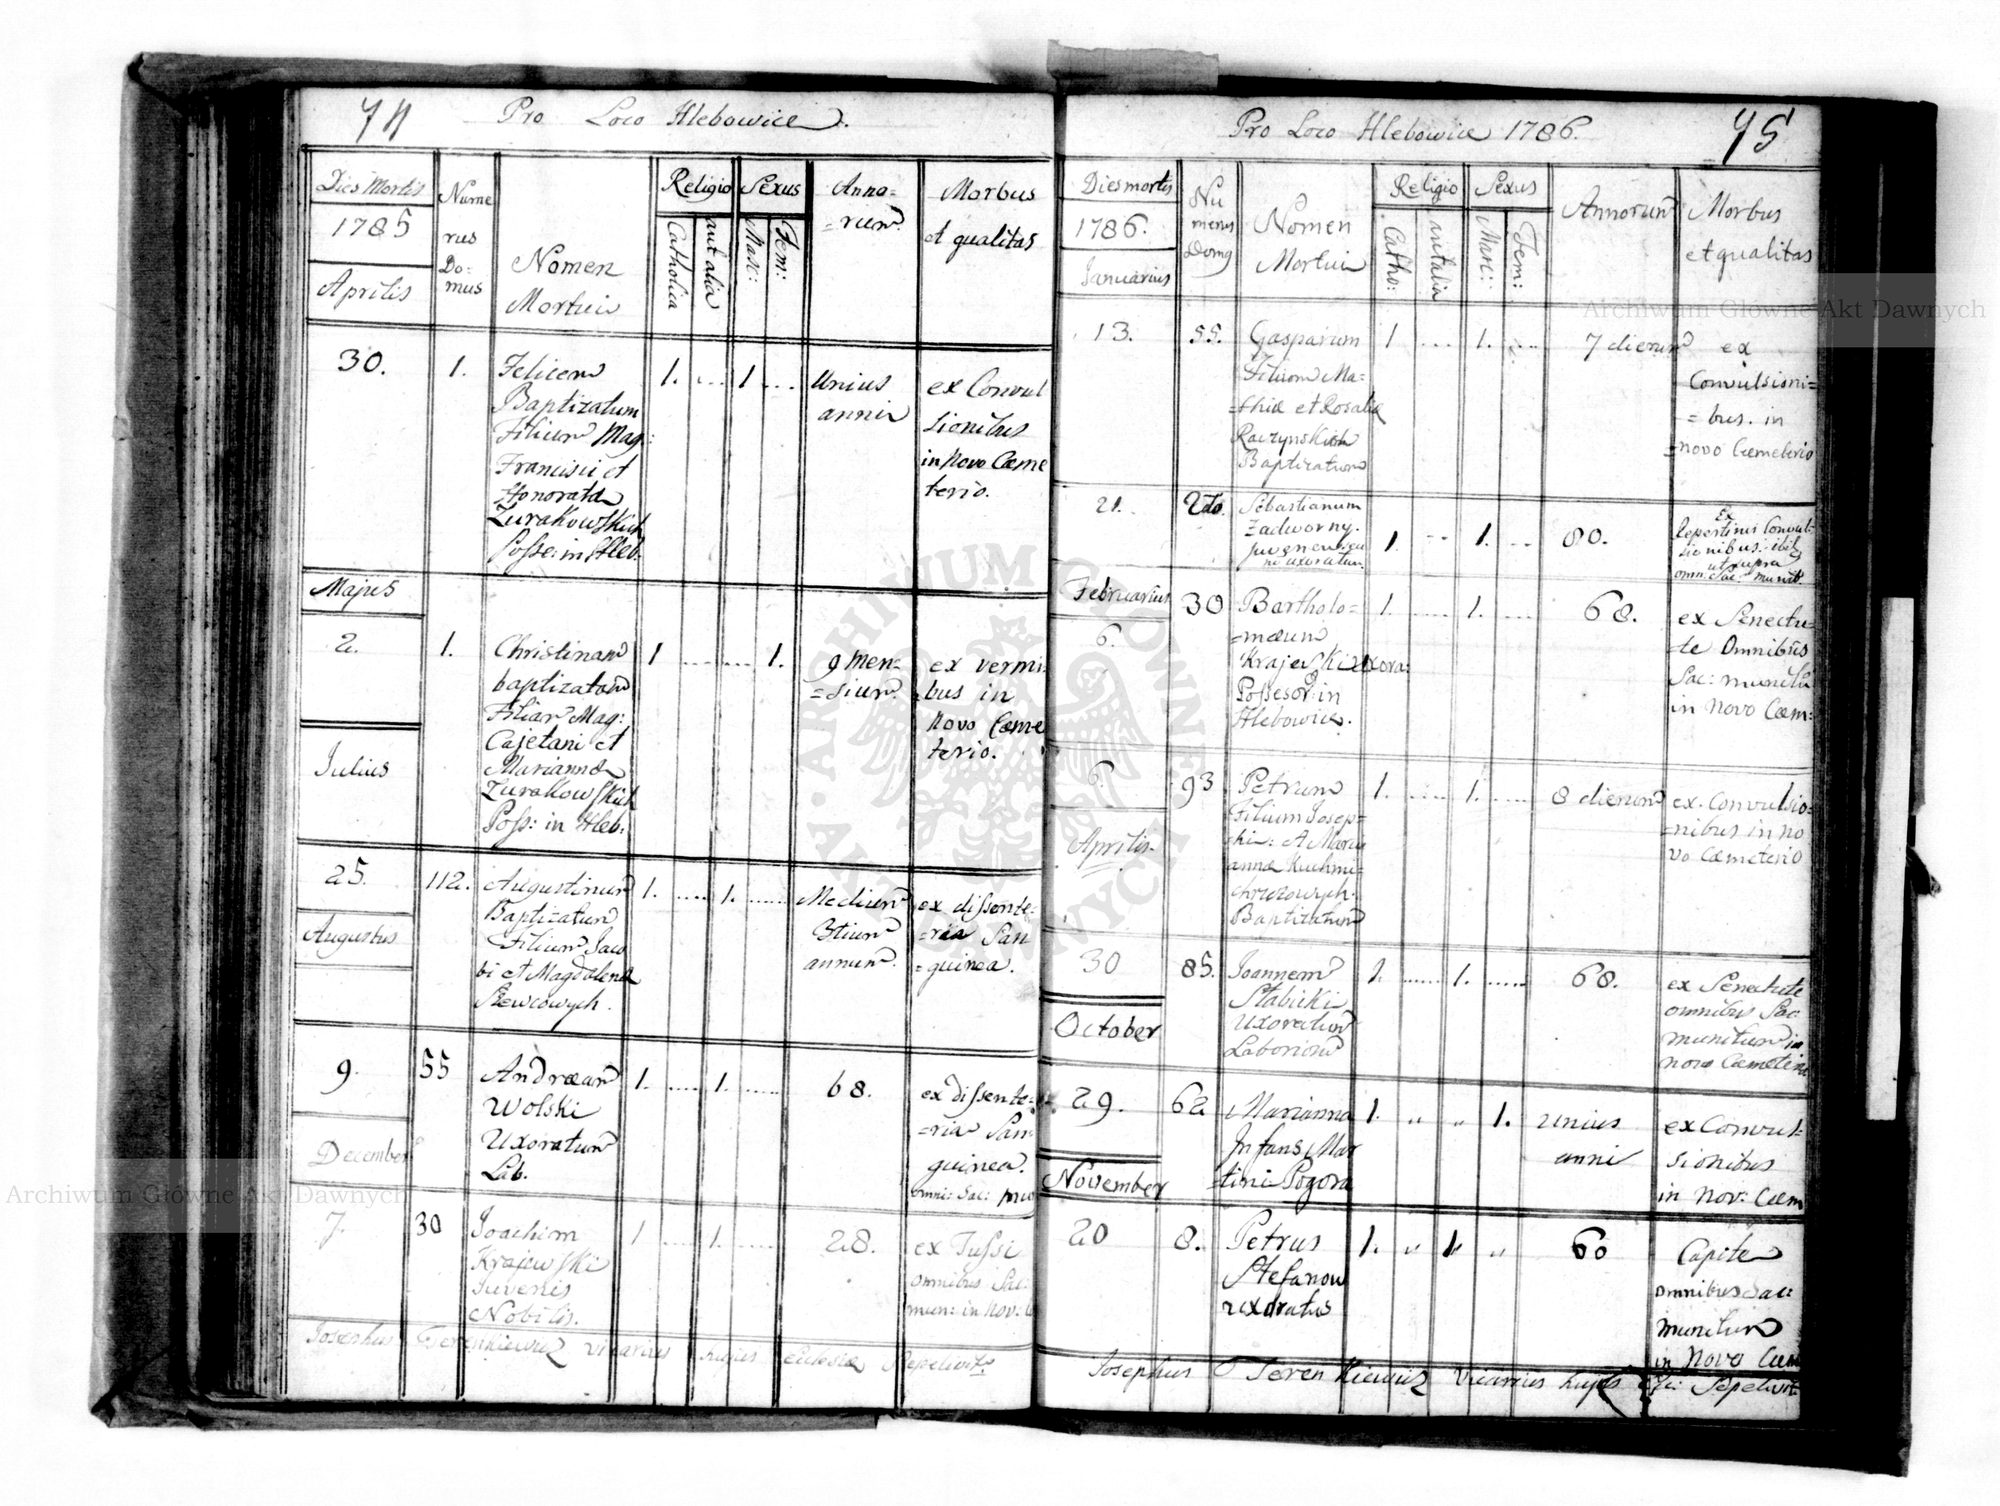 74
Pro Loco Hlebowice.
Dies Mortis
1785
Aprilis
Nume
rus
Do=
mus
Nomen
Mortui
Religio
Catholica
aut alia
Sexus
Masc:
Fem:
Anno=
=rum
Morbus
et qualitas
30.
1.
Felicem
Baptizatum
Filium Mag:
Francisci et
Honorata
Zurakowskich
Posse: in Hleb.
1. .... 1 ....
Unius
anni
ex Convul
sionibus
in Novo Cæme
terio.
Majus
2.
1.
Christinam
baptizatam
Filiam Mag:
Cajetani et
Marianna
Zurakowskich
Poss: in Hleb:
1 .... .... 1.
9 men=
=sium
ex vermi
bus in
Novo Cæme
terio.
Julius
25.
112.
Augustinum
Baptizatum
Filium Jaco
bi et Magdalena
Szewcowych.
1. .... 1. ....
Medium
3tium
annum.
ex dissente=
=ria San
=guinea.
Augustus
9.
55
Andream
Wolski
Uxoratum
Lab.
1. .... 1. ....
68.
ex dissente=
=ria San=
guinea.
omni: Sac: mu
December
7.
30
Joachim
Krajewski
Juvenis
Nobilis.
1 .... 1. ....
28.
ex Tussi
omnibus Sac:
mun: in Nov:
Josephus Terenkiewicz vicarius hujus Ecclesiæ Sepelivit
75
Pro Loco Hlebowice 1786.
Dies mortis
1786.
Januarius
Nu
merus
Domus
Nomen
Mortui
Religio
Catho:
aut alia
Sexus
Masc:
Fem:
Annorum
Morbus
et qualitas
13.
55.
Gasparum
Filium Ma=
=thiæ et Rosaliæ
Raczynskich
Baptizatum
1 .... 1. ....
7 dierum
ex
Convulsioni=
=bus. in
=novo Cæmeterio
21.
Sebastianum
Zadworny.
1. .. 1. ..
80.
Ex
Repentinis Convul=
sionibus. ibid
ut supra
omn: Sac: munit.
Februarius
6.
30
Bartholo=
=mæum
Krajewski uxora:
Possesor in
Hlebowice.
1. .... 1. ....
68.
ex Senectu=
te Omnibus
Sac: munitum
in Novo Cæm:
6
93
Petrum
Filium Josep=
hi: et Mari
anna Kuchmi
chrozowych
Baptizatum
1. .... 1. ....
8 dierum
ex. Convulsio=
=nibus in no
vo Cæmeterio
Aprilis.
30
85.
Joannem
Stabicki
Uxoratum
Laborion
1. .... 1. ....
68.
ex Senectute
omnibus Sac:
munitum in
novo Cæmeterio
October
29.
62
Marianna
Infans Mar
tini Pogora
1. " " 1.
Unius
anni
ex Convul=
sionibus
in Nov: Cæm
November
20
8.
Petrus
Stefanow
uxoratus
1. " 1. "
60
Capite
omnibus Sac:
munitum
in Novo Cæm
Josephus Terenkiewicz Vicarius hujus Sepelivit
Archiwum Główne Akt Dawnych
Archiwum Główne Akt Dawnych
ARCHIWUM GŁÓWNE AKT DAWNYCH